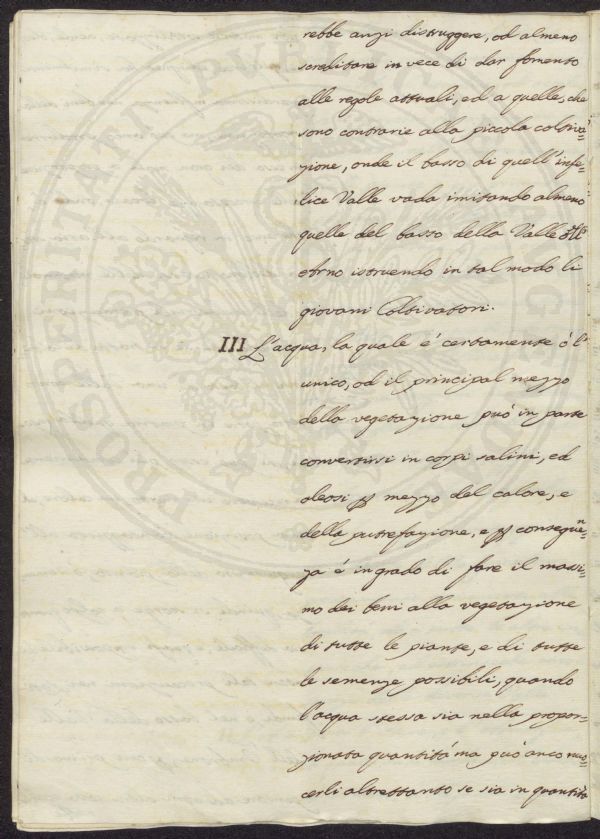 rebbe anzi distruggere, od almeno
screditare in vece di dar fomento
alle regole attuali, ed a quelle, che
sono contrarie alla piccola coltiva=
zione, onde il basso di quell' infe=
lice Valle vada imitando almeno
quelle del basso della Valle di
Arno istruendo in tal modo li
giovani Coltivatori.
III L'acqua, la quale é certamente ò l'
unico, od il principal mezzo
della vegetazione può in parte
convertirsi in corpi salini, ed
oleosi p mezzo del calore, e
della putrefazione, e p consegue=
n
za é in grado di fare il massi=
mo dei beni alla vegetazione
di tutte le piante, e di tutte
le semenze possibili, quando
l'acqua stessa sia nella propor=
zionata quantitá ma può anco nuo=
cerli altrettanto se sia in quantitá
PROSPERITATI PUBLICAE AUGENDAE